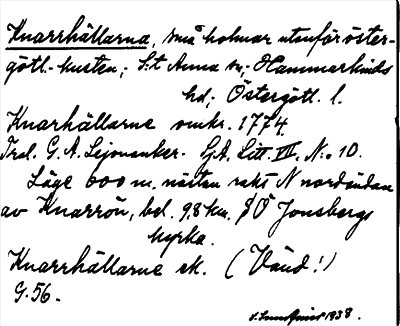 Knarrhällarna, små holmar utanför öster-
götl.-kusten; S:t Anna sn; Hammarkinds
hd; Östergötl. l.
Knarhällarne omkr. 1774.
Trol. G. A. Lejonanker. LjA. Litt. VII, N:o 10.
Läge 600 m. nästan rakt N nordändan
av Knarrön, bel. 9,8 km. SÖ Jonsbergs
kyrka.
Knarrhällarne ek. (Vänd!)
G.56.
1938.